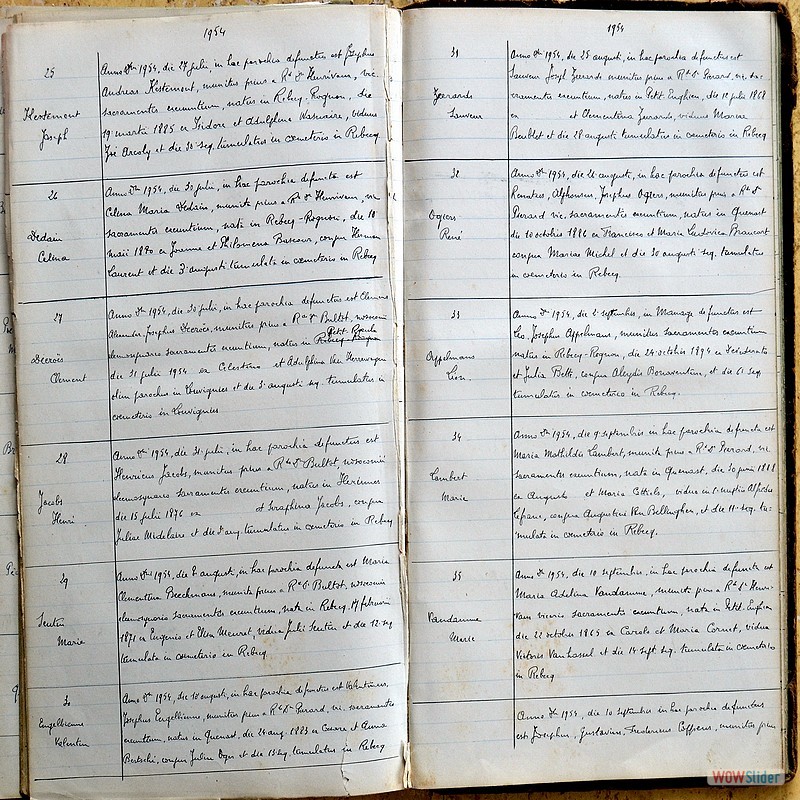 1954
25
Hertement
Joseph
Anno Dni 1954, die 27 julii, in hac parochia defunctus est Josephus
Andreas Hestement, munitus prius a Rdo D. Henrivam, vic.
sacramentis exeuntium, natus in Rebecq-Rognon, die
19 martii 1885 ex Isidore et Adulphina viduus
et die 30 seq. tumulatus in cœmeterio in Rebecq
26
Dedain
Celina
Anno Dni 1954, die 30 julii, in hac parochia defuncta est
Celina Maria Dedain, munita prius a Rdo D. Henrivam, vic.
sacramentis exeuntium, nata in Rebecq-Rognon, die 10
maii 1890 ex Joanna et Philomena conjux Herman
Laurent et die 3 augusti tumulata in cœmeterio in Rebecq
27
Decroës
Clement
Anno Dni 1954, die 30 julii, in hac parochia defunctus est Clemens
Alexander, Josephus Decroës, munitus prius a Rdo D. Bultot, nosocomii
elemosynario sacramentis exeuntium, natus in Petit-Rœulx
die 31 julii 1954 ex Celestino et Adulphina Van
olim parochus in Louvignies et die 3 augusti seq. tumulatus in
cœmeterio in Louvignies
28
Jacobs
Henri
Anno Dni 1954, die 31 julii, in hac parochia defunctus est
Henricus Jacobs, munitus prius a Rdo D. Bultot, nosocomii
elemosynario sacramentis exeuntium, natus in Herinnes
die 15 julii 1876 ex et Seraphina Jacobs, conjux
Juliae Midelaire et die 3 aug. tumulatus in cœmeterio in Rebecq
29
Seutin
Marie
Anno Dni 1954, die 8 augusti, in hac parochia defuncta est Maria
Clementina Beeckmans, munita prius a Rdo D. Bultot, nosocomii
elemosynario sacramentis exeuntium, nata in Rebecq, 17 februarii
1871 ex Eugenio et Meuret, vidua Julii Seutin et die 12 seq.
tumulata in cœmeterio in Rebecq
30
Engelbienne
Valentin
Anno Dni 1954, die 10 augusti, in hac parochia defunctus est Valentinus,
Josephus Engelbienne, munitus prius a Rdo D. Gerard, vic. sacramentis
exeuntium, natus in Quenast, die 24 aug. 1883 ex Cesare et Anna
conjux Juliae et die 13 seq. tumulatus in Rebecq
1954
31
Geerards
Sauveur
Anno Dni 1954, die 25 augusti, in hac parochia defunctus est
Sauveur Joseph Geerards munitus prius a Rdo D. Gerard, vic. sa-
cramentis exeuntium, natus in Petit-Enghien, die 10 julii 1868
ex et Clementina Geerards, viduus Mariae
Boublet et die 28 augusti tumulatus in cœmeterio in Rebecq
32
Ogiers
René
Anno Dni 1954, die 26 augusti, in hac parochia defunctus est
Renatus, Alphonsus, Josephus Ogiers, munitus prius a Rdo D.
Gerard vic. sacramentis exeuntium, natus in Quenast
die 10 octobris 1886 ex Francisco et Maria Ludovica Brancart
conjux Mariae Michel et die 30 augusti seq. tumulatus
in cœmeterio in Rebecq.
33
Appelmans
Léon.
Anno Dni 1954, die 2 septembris, in Manage defunctus est
Leo, Josephus Appelmans, munitus sacramentis exeuntium
natus in Rebecq-Rognon, die 24 octobris 1894 ex Desiderato
et Julia Bette, conjux Aleydis Bonaventure, et die 6 seq.
tumulatus in cœmeterio in Rebecq.
34
Lambert
Marie
Anno Dni 1954, die 9 septembris in hac parochia defuncta est
Maria Mathilda Lambert, munita prius a Rdo D. Gerard, vic.
sacramentis exeuntium, nata in Quenast, die 30 junii 1888
ex Augusto et Maria vidua in 1is nuptiis Alfredi
Lefranc, conjux Augustini Van Bellinghen, et die 11 seq. tu-
mulata in cœmeterio in Rebecq.
35
Vandamme
Marie
Anno Dni 1954, die 10 septembris, in hac parochia defuncta est
Maria Adelina Vandamme, munita prius a Rdo D. Henri-
vam vicario sacramentis exeuntium, nata in Petit-Enghien
die 22 octobris 1865 ex Carolo et Maria Cornet, vidua
Victoris Vanhassel et die 14 sept. seq. tumulata in cœmeterio
in Rebecq
Anno Dni 1954, die 10 septembris in hac parochia defunctus
est Josephus, Gustavus, Fredericus munitus prius
WOWSlider